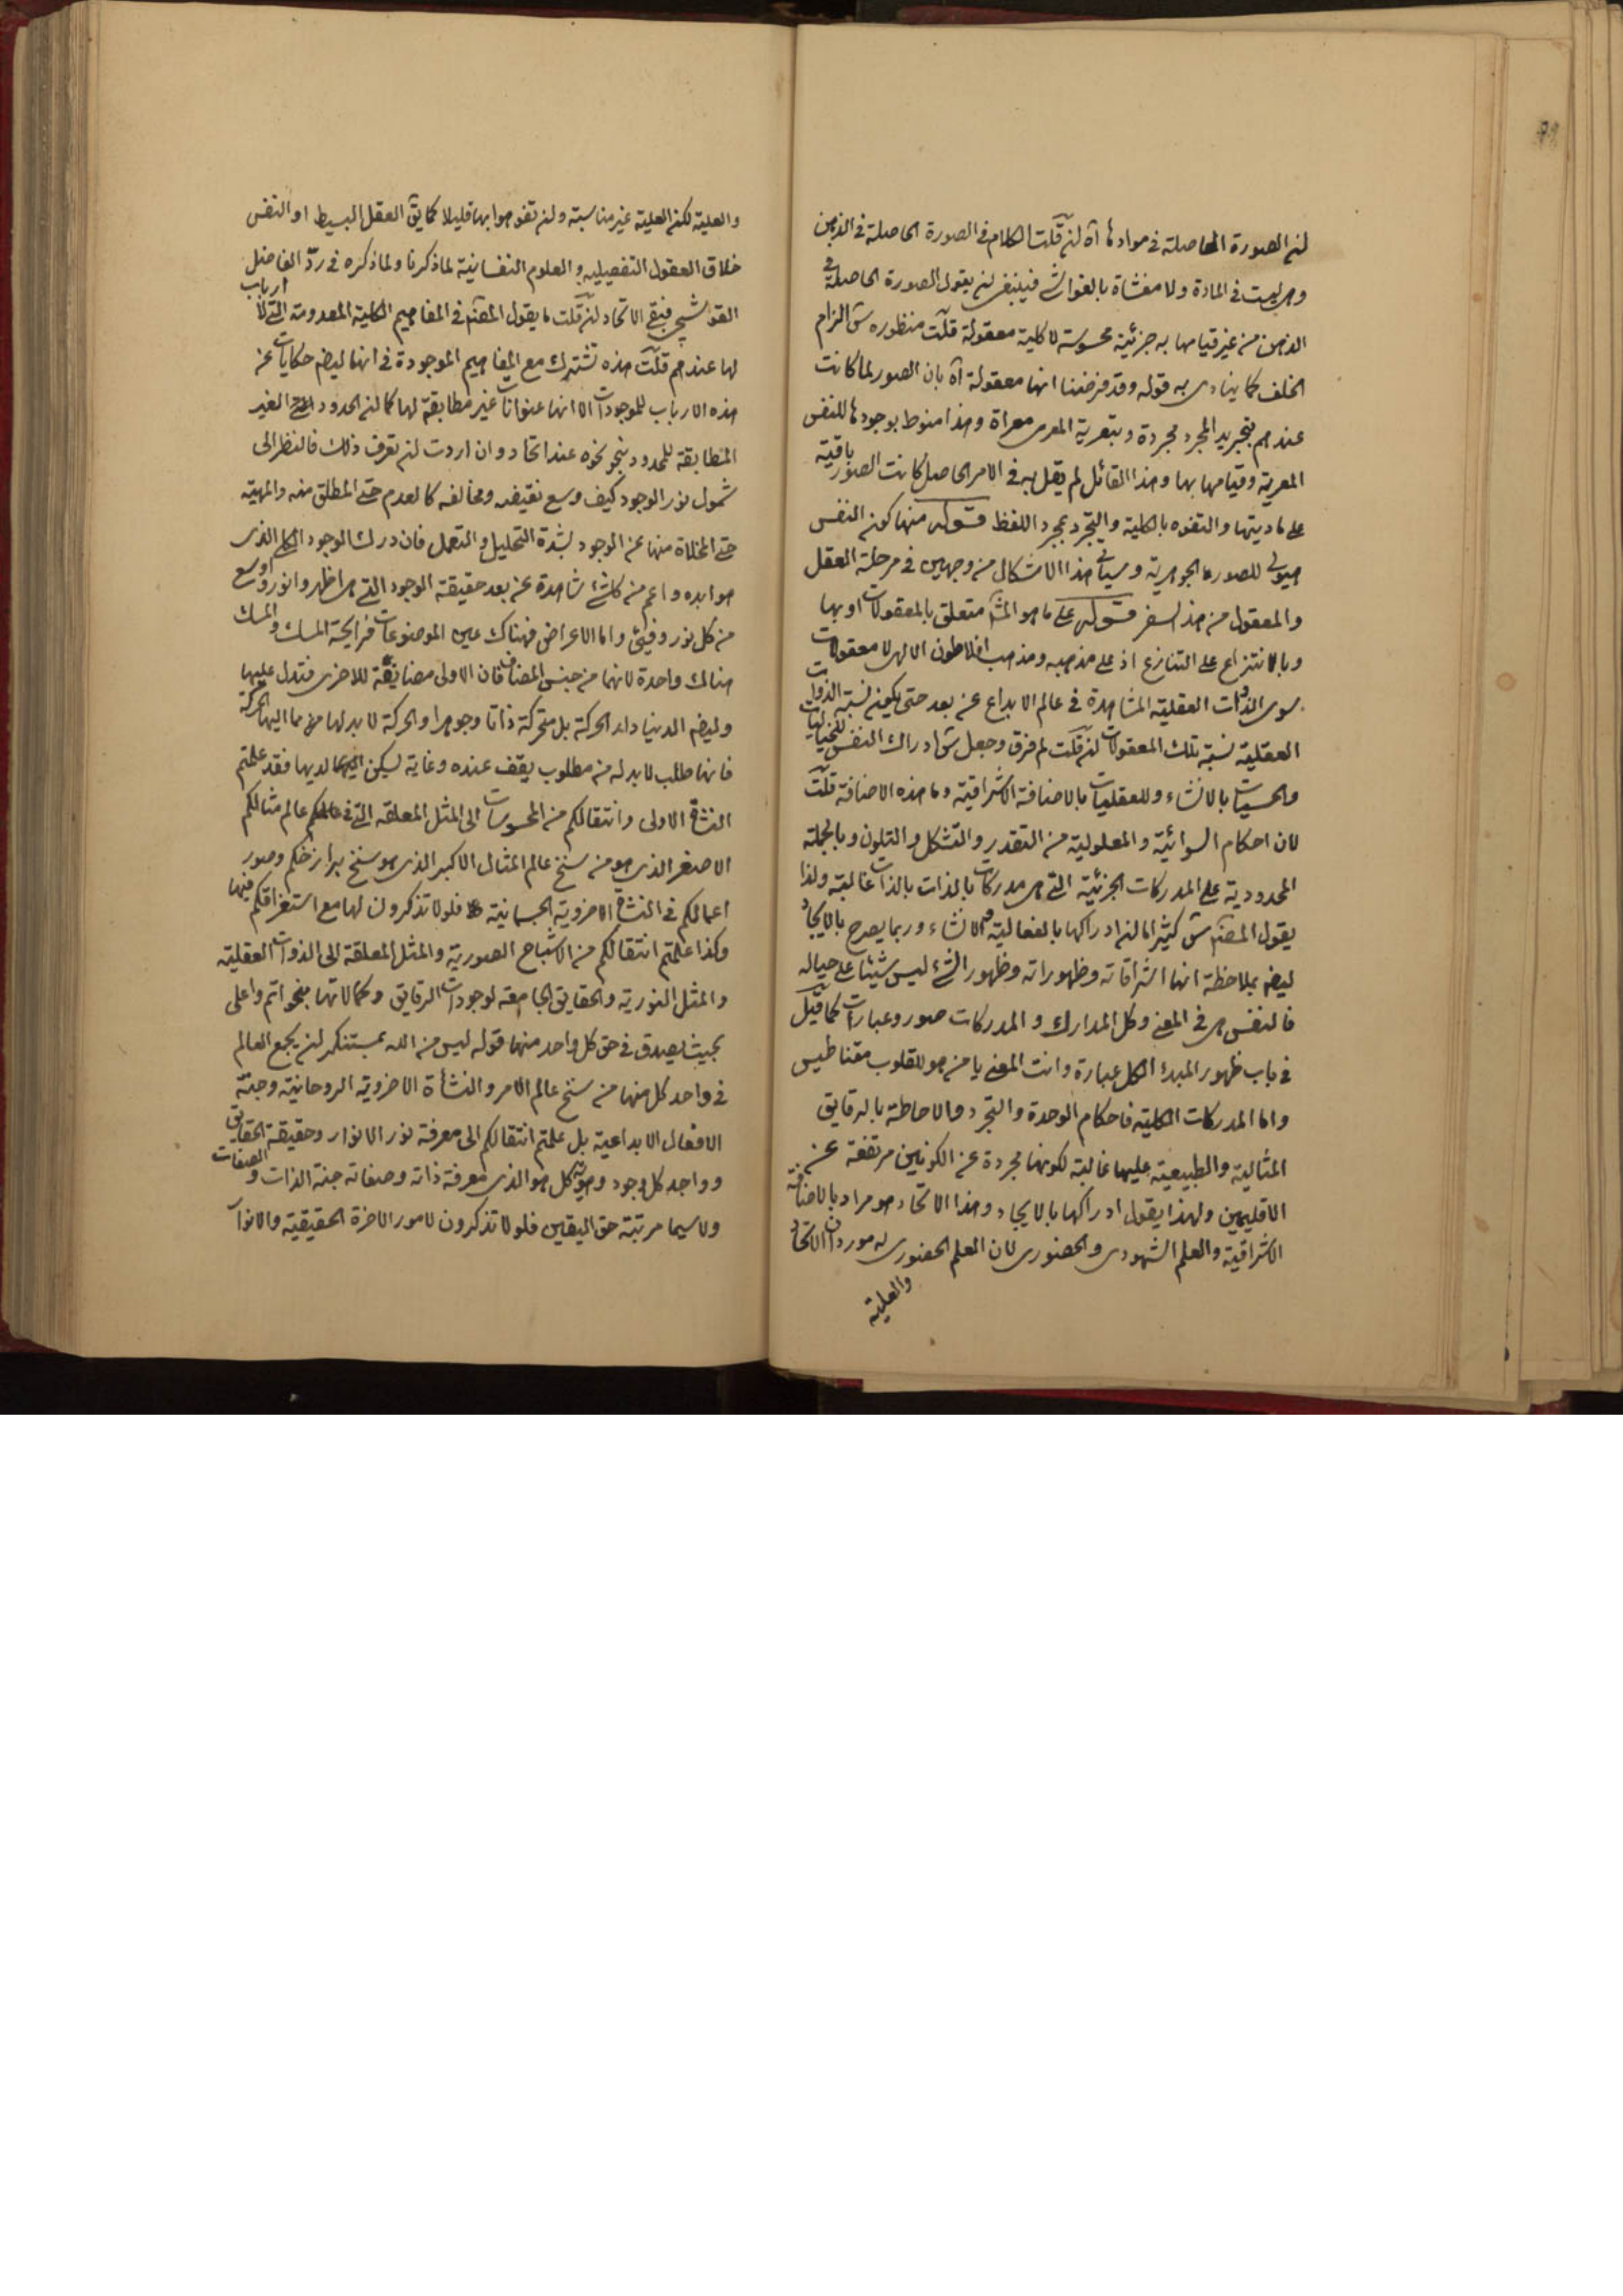 لن الصورة الحاصلة فى موادها آه لن قلت الكلام فى الصورة الحاصلة فى الذهن
وهى ليست فى المادة ولا مغشاة بالغواشى فينبغى لن يقول الصورة الحاصلة فى
الذهن من غير قيامها به جزئية محسوسة لا كلية معقولة قلت منظوره س الزام
الخلف كما ينادى به قوله وقد فرضنا انها معقولة آه بان الصور لما كانت
عندهم بتجريد المجرد مجردة وبتعرية المعرى معراة وهذا منوط بوجودها للنفس
المعرية وقيامها بها وهذا القائل لم يقل به فى الامر الحاصل كانت الصور باقية
على ماديتها والتفوه بالكلية والتجرد بمجرد اللفظ قوله منها كون النفس
هيولى للصورة الجوهرية وسيأتى هذا الاشكال من وجهين فى مرحلة العقل
والمعقول من هذا السفر قوله على ما هو المش متعلق بالمعقولات او بها
وبالانتزاع على التنازع اذ على مذهبه ومذهب افلاطون الالهى لا معقولات
سوى الذوات العقلية المشاهدة فى عالم الابداع عن بعد حتى يكون نسبة الذوات
العقلية نسبة تلك المعقولات لن قلت لم فرق وجعل س ادراك النفس للخياليات
والحسيات بالانشاء وللعقليات بالاضافة الاشراقية وما هذه الاضافة قلت
لان احكام السوائية والمعلولية من التقدر والتشكل والتلون وبالجملة
المحدودية على المدركات الجزئية التى هى مدركات بالذات بالذات غالبة ولذا
يقول المصنف س كثيرا ما لن ادراكها بالفعالية والانشاء وربما يصرح بالايجاد
ليضم بملاحظة انها اشراقاته وظهوراته وظهور الشئ ليس شيئا على حياله
فالنفس هى فى المعنى وكل المدارك والمدركات صور وعبارات كما قيل
فى باب ظهور المبدء الكل عبارة وانت المعنى يا من هو للقلوب مقناطيس
واما المدركات الكلية فاحكام الوحدة والتجرد والاحاطة بالرقايق
المثالية والطبيعية عليها غالبة لكونها مجردة عن الكونين مرتفعة عن
الاقليمين ولهذا يقول ادراكها بالايجاد وهذا الاتحاد هو مراد بالاضافة
الاشراقية والعلم الشهودى والحضورى لان العلم الحضورى له موردان الاتحاد
والعلية
والعلية لكن العلية غير مناسبة ولن تفوهوا بها قليلا كما يق العقل البسيط او النفس
خلاق العقول التفصيلية والعلوم النفسانية لما ذكرنا ولما ذكره فى رد الفاضل
القوشجى فبقى الاتحاد لن قلت ما يقول المصنف فى المفاهيم الكلية المعدومة التى لا ارباب
لها عندهم قلت هذه تشترك مع المفاهيم الموجودة فى انها ليضم حكايات عن
هذه الارباب للموجودات الا انها عنوانات غير مطابقة لها كما لن الحدود الغير
المتطابقة للمحدود بنحو نحوه عند اتحاد وان اردت لن تعرف ذلك فانظر الى
شمول نور الوجود كيف وسع نقيضه ومخالفه كالعدم حتى المطلق منه والمهية
حتى المخلاة منها عن الوجود بشدة التحليل والتعمل فان درك الوجود الذى
هو ابده واعم من كل شئ مشاهدة عن بعد حقيقة الوجود التى هى اظهر وانور واوسع
من كل نور وفيئ واما الاعراض فهناك عين الموضوعات فرايحة المسك والمسك
هناك واحدة لانها من جنس المضاف فان الاولى مضايفة للاخرى فتدل عليها
وليضم الدنيا دار الحركة بل متحركة ذاتا وجوهرا والحركة لا بد لها من ما اليها الحركة
فانها طلب لا بد له من مطلوب يقف عنده وغاية ليسكن لديها فقد علمتم
النشأة الاولى وانتقالكم من المحسوسات الى المثل المعلقة التى فى عالمكم عالم مثالكم
الاصغر الذى هو من سنخ عالم المثال الاكبر الذى هو سنخ برازخكم وصور
اعمالكم فى النشأة الاخروية الجسمانية فلولا تذكرون لها مع استغراقكم فيها
وكذا علمتم انتقالكم من الاشباح الصورية والمثل المعلقة الى الذوات العقلية
والمثل النورية والحقايق الجامعة لوجودات الرقايق وكمالاتها بنحو اتم واعلى
بحيث يصدق فى حق كل واحد منها قوله ليس من الله بمستنكر لن يجمع العالم
فى واحد كل منها من سنخ عالم الامر والنشأة الاخروية الروحانية وجنة
الافعال الابداعية بل علمتم انتقالكم الى معرفة نور الانوار وحقيقة الحقايق
وواجد كل وجود وهوية كل هو الذى معرفة ذاته وصفاته جنة الذات والصفات
ولا سيما مرتبة حق اليقين فلولا تذكرون لامور الاخرة الحقيقية والانوا